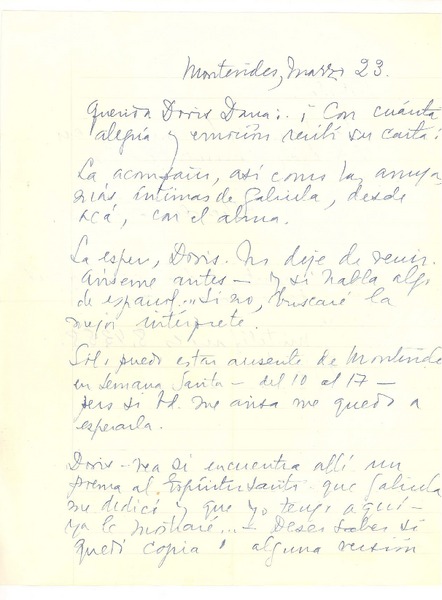 Montevideo, Marzo 23.
Querida Doris Dana: ¡Con cuánta
alegría y emoción recibí su carta!
La acompaño, así como las amigas
más íntimas de Gabriela, desde
acá, con el alma.
La espero, Doris. No deje de venir.
Avíseme antes — y si habla algo
de español... Si no, buscaré la
mejor intérprete.
Sólo puedo estar ausente de Montevideo
en Semana Santa — del 10 al 17 —
pero si Ud. me avisa me quedo a
esperarla.
Doris — vea si encuentra allí un
poema al Espíritu Santo que Gabriela
me dedicó y que yo tengo aquí —
ya le mostraré... — Deseo saber si
quedó copia o alguna versión